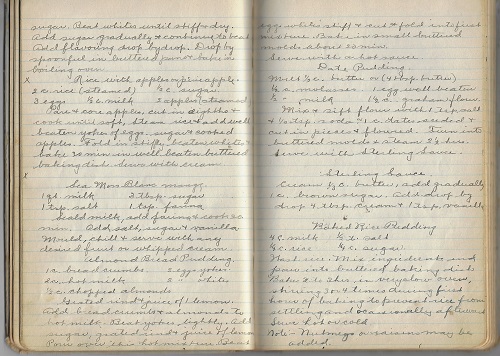 sugar. Beat whites until stiff & dry.
Add sugar gradually & continue to beat
Add flavouring drop by drop. Drop by
spoonful in buttered pan & bake in
boiling oven.
x Rice with apples or pineapple.
2 c. rice (steamed) ½ c. sugar
3 eggs ½ c. milk 2 apples (steamed
Pare & core apples, cut in eighths &
cook until soft, steam rice, add well
beaten yokes of eggs, sugar & cooked
apples. Fold in stiffly beaten whites &
bake 20 min in well beaten buttered
baking dish. Serve with cream.
x
Sea Moss Blanc mange.
1 qt. milk 2 tbsp. sugar
1 tsp salt 1 tsp. farina
Scald milk, add farina & cook 20
min. Add salt, sugar & vanilla
Mould, chill & serve with any
desired fruit or whipped cream.
Almond Bread Pudding.
1 c. bread crumbs. 2 eggs yokes
2 c. hot milk 2 " whites
½ c. chopped almonds
Grated rind & juice of 1 lemon.
Add bread crumbs & almonds to
hot milk. Beat yokes lightly. Add
sugar, grated rind & juice of lemon
Pour over this hot mixture. Beat
egg whites stiff & cut & fold into first
mixture. Bake in small buttered
molds about 20 min.
Serve with a hot sauce.
Date Pudding.
Melt ¼ c. butter or (4 tbsp. butter)
½ c. molasses. 1 egg well beaten
½ c. milk 1⅔ c. graham flour
Mix & sift flour with 1 tsp salt
& ½ tsp. soda 1 c. dates seeded &
cut in pieces & floured. Turn into
buttered molds & steam 2½ hrs.
Serve with Sterling Sauce.
Sterling Sauce
Cream ½ c. butter, add gradually
1 c. brown sugar. Add drop by
drop 4 tbsp. cream & 1 tsp. vanilla
Baked Rice Pudding
4 c. milk ½ t. salt
⅓ c. rice ⅓ c. sugar
Wash rice. Mix ingredients and
pour into buttered baking dish.
Bake 2½ - 3 hrs. in very slow oven,
stirring 3 or 4 times during first
hour of baking to prevent rice from
settling, and occasionally afterward
Serve hot or cold.
Note - Nutmeg or raisins may be
added.